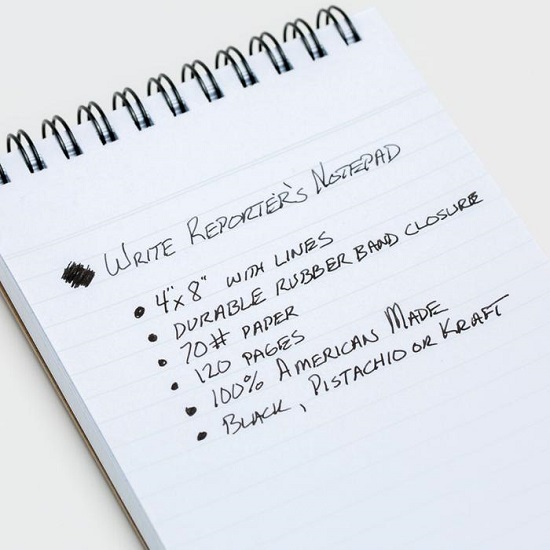 WRITE REPORTER'S NOTEPAD
• 4"x8" WITH LINES
• DURABLE RUBBER BAND CLOSURE
• 70# PAPER
• 120 PAGES
• 100% AMERICAN MADE
• BLACK, PISTACHIO OR KRAFT